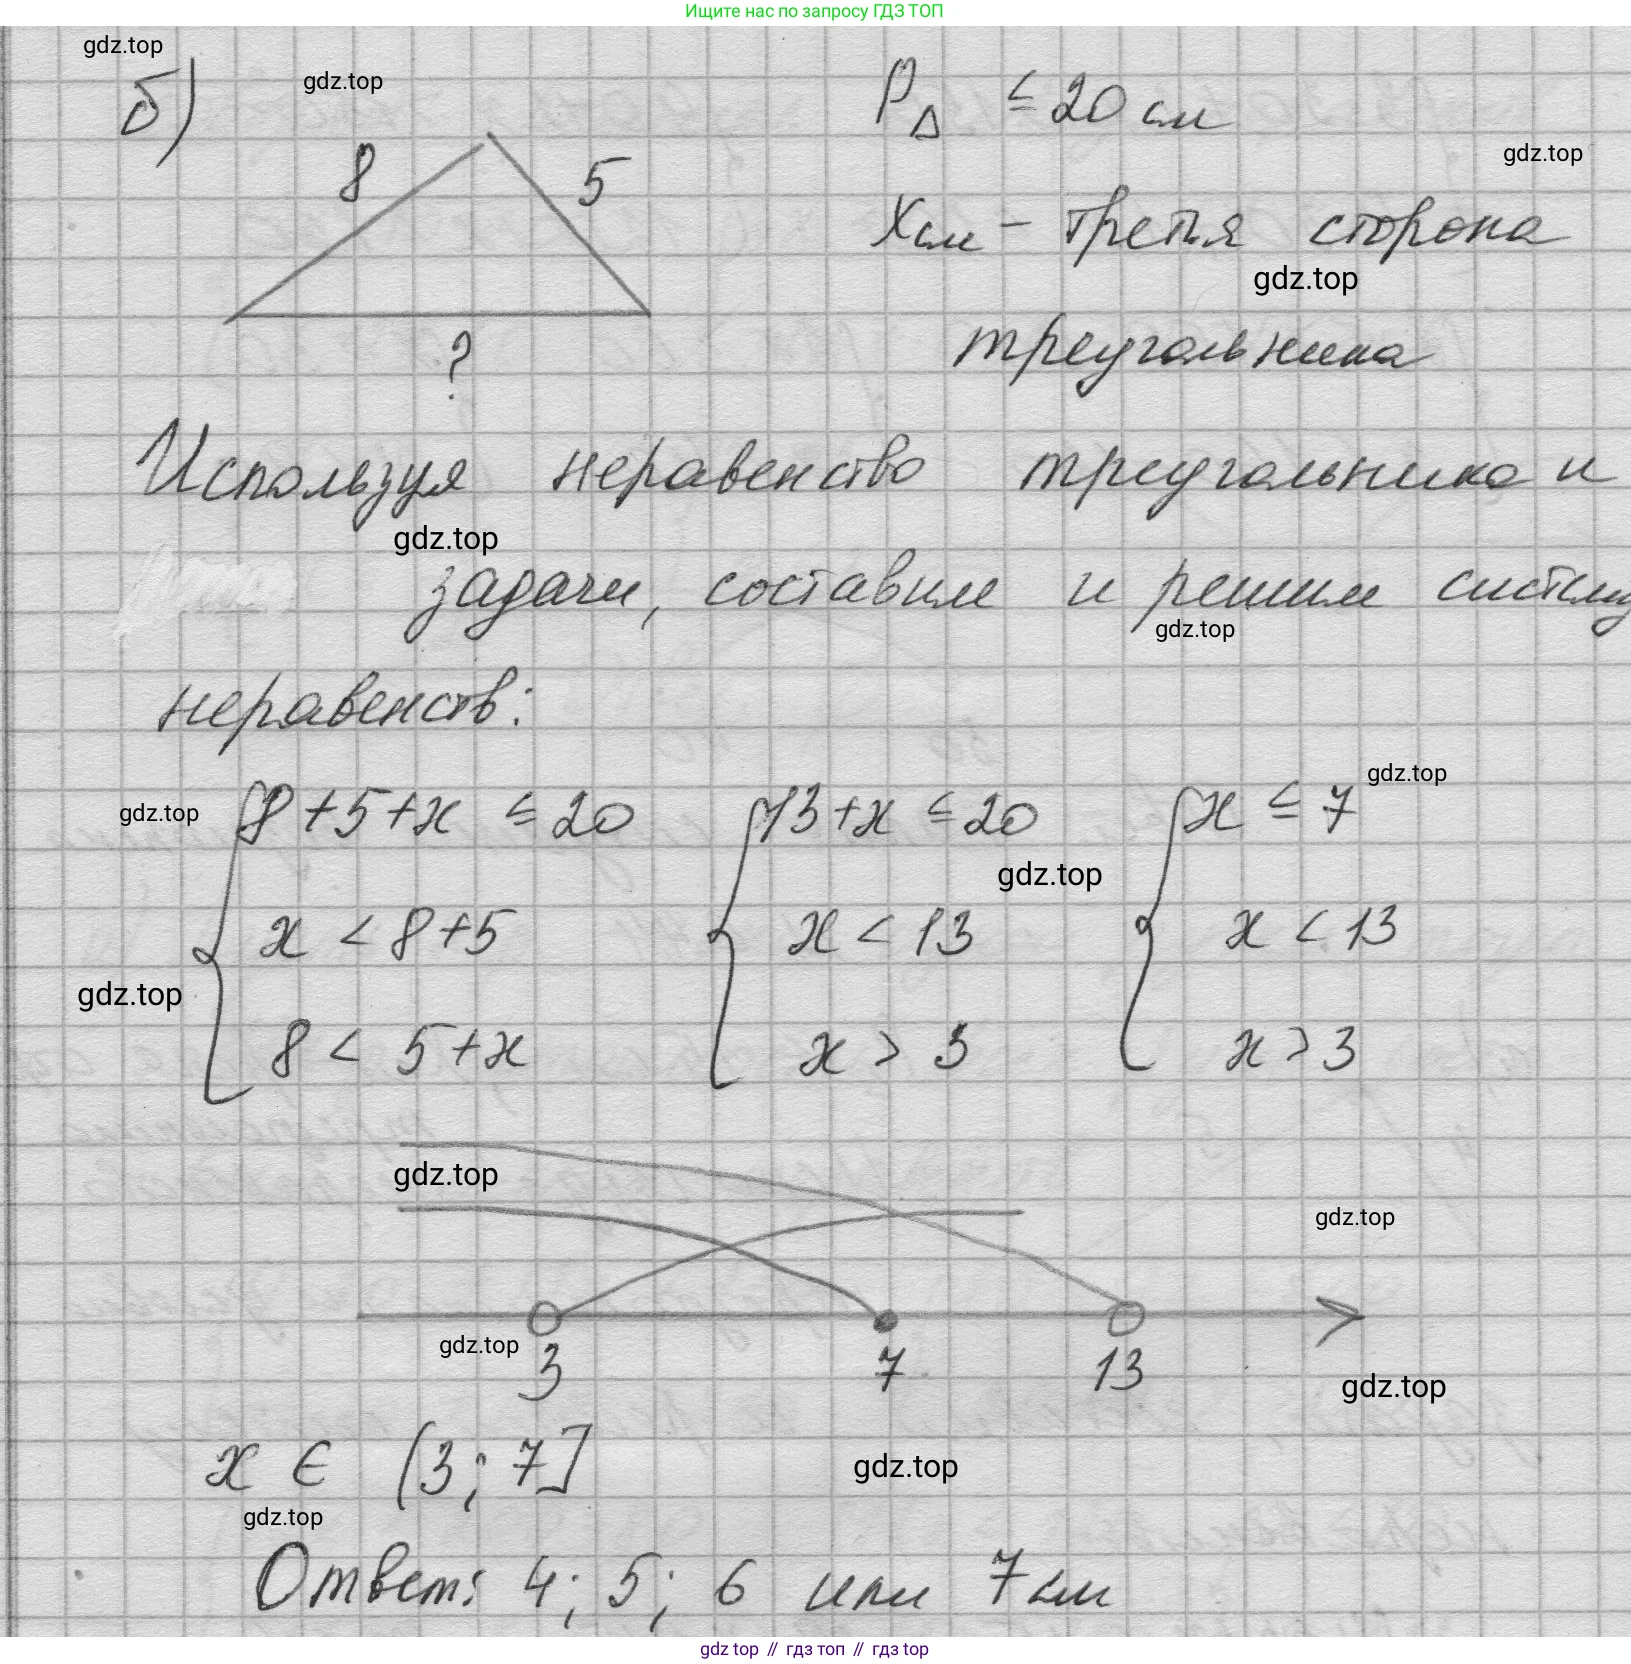 Ищите нас по запросу ГДЗ ТОП
gdz.top
б)
gdz.top
8
5
?
P△ ≤ 20 см
gdz.top
x см – третья сторона
gdz.top
треугольника
Используя неравенство треугольника и
gdz.top
задачи, составим и решим систему
gdz.top
неравенств:
gdz.top
gdz.top
{8+5+x ≤ 20 {13+x ≤ 20 {x ≤ 7
gdz.top
x < 8+5 x < 13 x < 13
gdz.top
8 < 5+x x > 3 x > 3
gdz.top
gdz.top
gdz.top
3 7 13
gdz.top
x ∈ (3; 7]
gdz.top
gdz.top
Ответ: 4; 5; 6 или 7 см
gdz top // гдз топ // гдз top